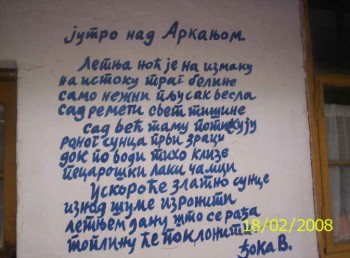 јутро над Аркањом.
Летња ноћ је на измаку
на истоку траг белине
само нежни пљусак весла
сад ремети свет тишине
сад већ таму потискују
раног сунца први зраци
док по води тихо клизе
пецарошки лаки чамци
Ускоро ће златно сунце
изнад шуме изронити
летњем дану што се рађа
топлину ће поклонити
Ђока В.
18/02/2008